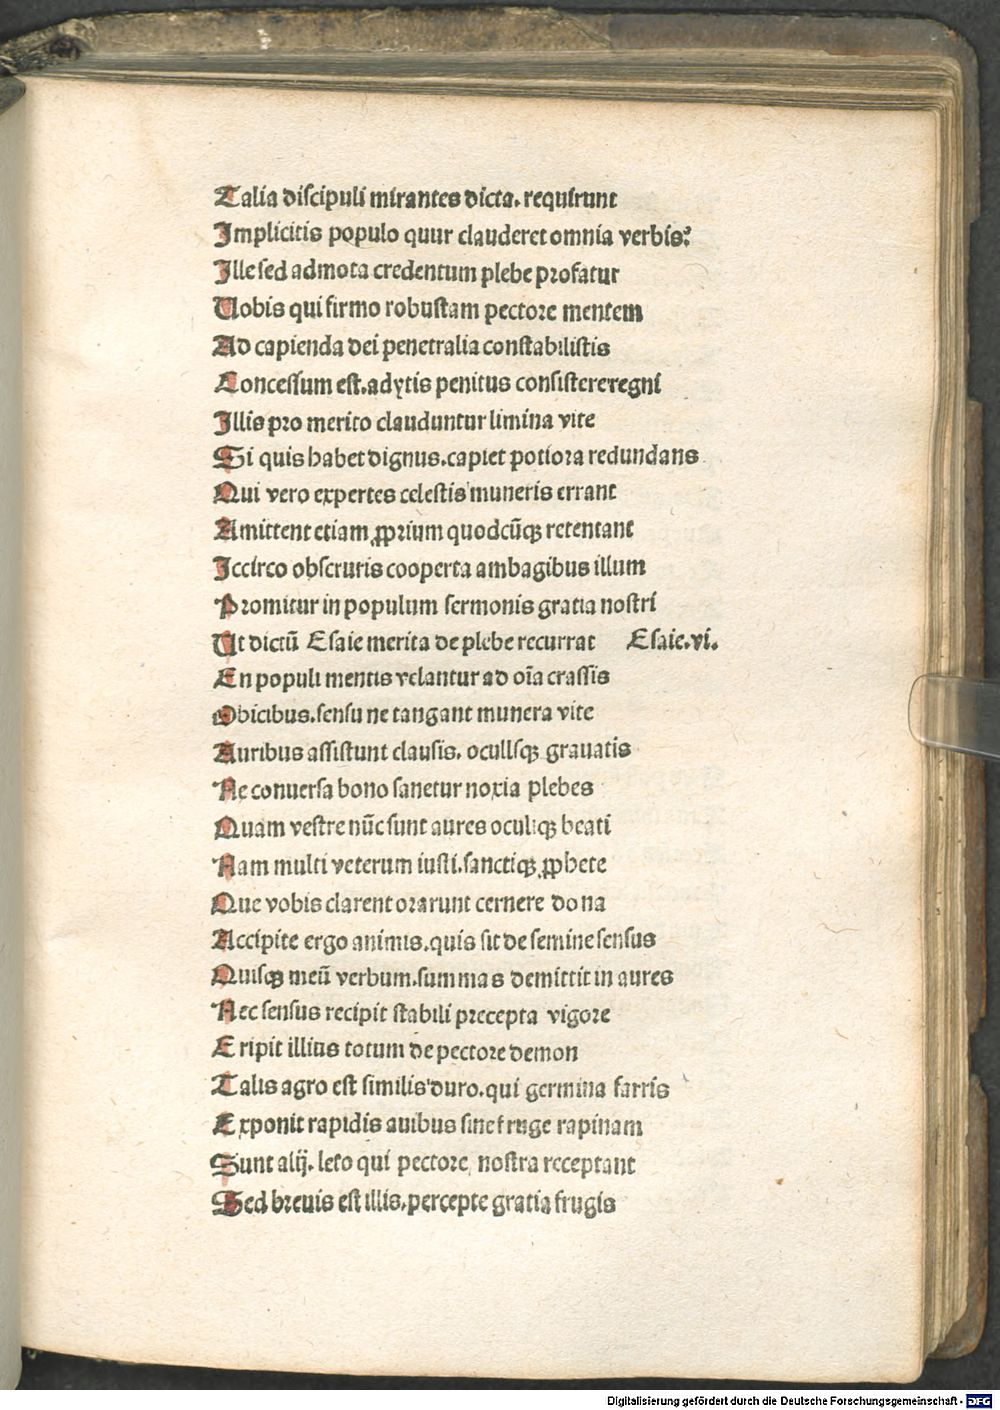 Talia discipuli mirantes dicta. requirunt
Implicitis populo quur clauderet omnia verbis?
Ille sed admota credentum plebe profatur
Uobis qui firmo robustam pectore mentem
Ad capienda dei penetralia constabilistis
Concessum est. adytis penitus consistere regni
Illis pro merito clauduntur limina vite
Si quis habet dignus. capiet potiora redundans
Qui vero expertes celestis muneris errant
Amittent etiam ꝓprium quodcūqꝫ retentant
Iccirco obscruris cooperta ambagibus illum
Promitur in populum sermonis gratia nostri
Ut dictū Esaie merita de plebe recurrat Esaie.vi.
En populi mentis velantur ad oīa crassis
Obicibus. sensu ne tangant munera vite
Auribus assistunt clausis. oculisqꝫ grauatis
Ne conuersa bono sanetur noxia plebes
Quam vestre nūc sunt aures oculiqꝫ beati
Nam multi veterum iusti. sanctiqꝫ ꝓphete
Que vobis clarent orarunt cernere dona
Accipite ergo animis. quis sit de semine sensus
Quisqꝫ meū verbum. summas demittit in aures
Nec sensus recipit stabili precepta vigore
Eripit illius totum de pectore demon
Talis agro est similis duro. qui germina farris
Exponit rapidis auibus sine fruge rapinam
Sunt alij. leto qui pectore nostra receptant
Sed breuis est illis. percepte gratia frugis
Digitalisierung gefördert durch die Deutsche Forschungsgemeinschaft - DFG